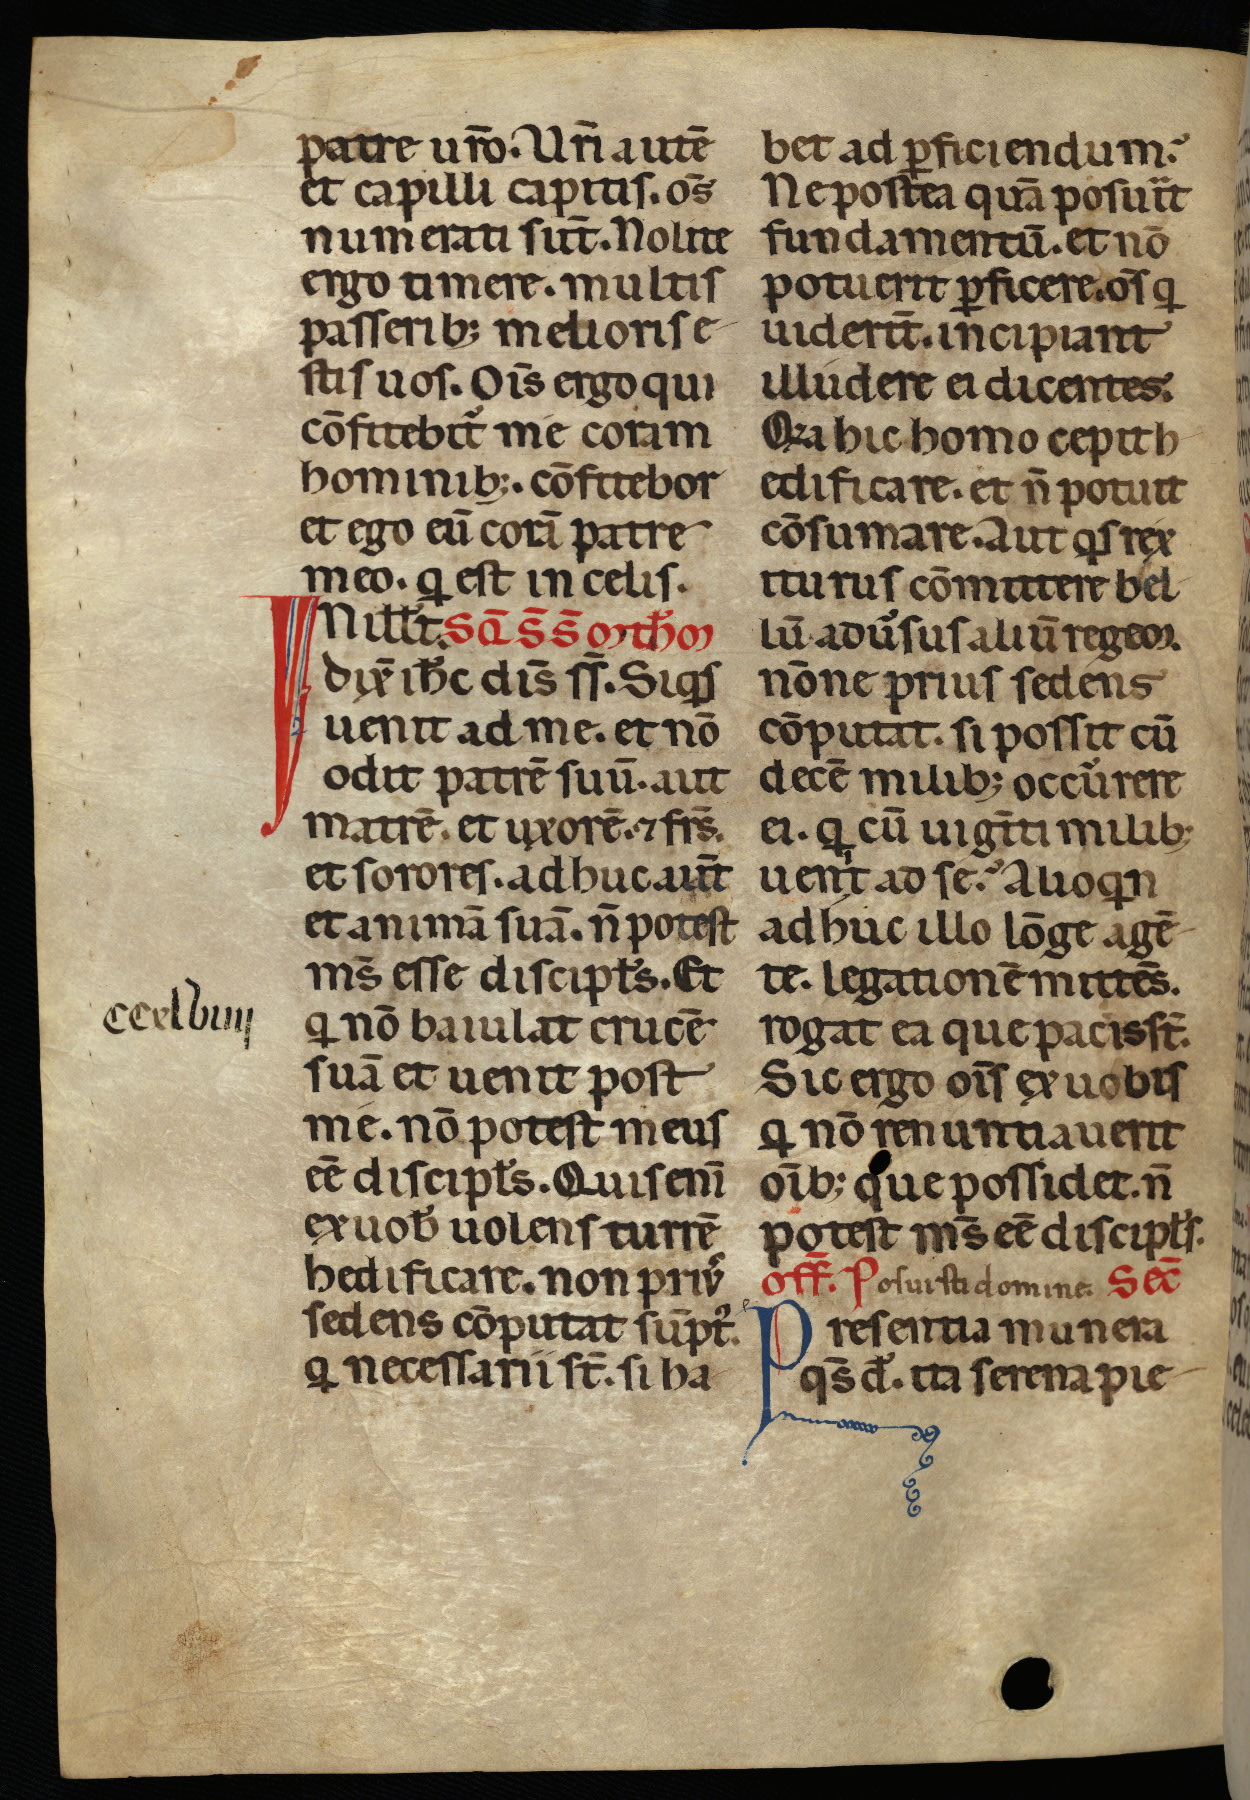 patre ur̄o. Ur̄i autē
et capilli capitis. om̄s
numerati sūt. Nolite
ergo timere. multis
passerib; melioris e
stis uos. Oīs ergo qui
cōfitebit᷑ me coram
hominib;. cōfitebor
et ego eū corā patre
meo. ꝗ est in celis.
IN ill̄ t. Sc̄d S̄ S̄ Mth̄m
dix̄ ih̄c dis̄ ss̄. Siqͥs
uenit ad me. et nō
odit patrē suū. aut
matrē. et uxorē. ⁊ fr̄s.
et sorores. adhuc aūt
et animā suā. n̄ potest
ms̄ esse discipl̄s. Et
ccxlviiij
ꝗ nō baiulat crucē
suā et uenit post
me. nō potest meus
eē discipl̄s. Quis enī
ex uob̄ uolens turrē
hedificare. non priꝰ
sedens cōputat sūpt᷑.
ꝗ necessarii st̄. si ha
bet ad ꝑficiendum.
Ne postea quā posuīt
fundamentū. et nō
potuerit ꝑficere. om̄s ꝗ
uiderīt. incipiant
illudere ei dicentes.
Qꝛa hic homo cepit h
edificare. et n̄ potuit
cōsumare. Aut qͥs rex
iturus cōmittere bel
lū aduꝰsus aliū regem.
nōne prius sedens
cōputat. si possit cū
decē milib; occur᷑rere
ei. ꝗ cū uigīti milib;
uenit ad se. Alioqͥn
adhuc illo lōge agē
te. legationē mittēs.
rogat ea que pacis st̄.
Sic ergo oīs ex uobis
ꝗ nō renuntiauerit
oīb; que possidet. n̄
potest ms̄ eē discipl̄s.
off̄. Posuisti domine. Sec̄
Presentia munera
qs̄ d̄. ita serena pie